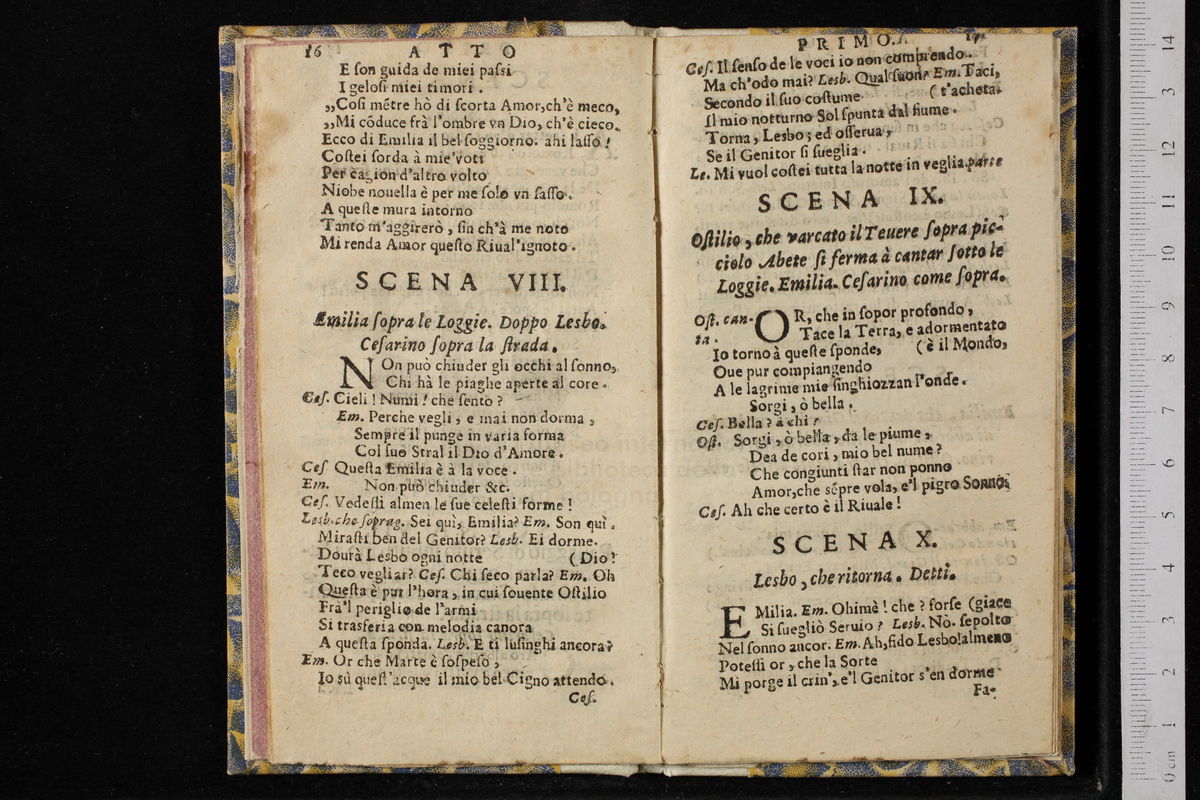 16 ATTO
E ſon guida de miei paſsi
I geloſi miei timori.
„Coſi mẽtre hò di ſcorta Amor, ch'è meco,
„Mi cõduce frà l'ombre vn Dio, ch'è cieco.
Ecco di Emilia il bel ſoggiorno. ahi laſſo!
Coſtei ſorda à mie'voti
Per cagion d'altro volto
Niobe nouella è per me ſolo vn ſaſſo.
A queſte mura intorno
Tanto m'aggirerò, ſin ch'à me noto
Mi renda Amor queſto Riual'ignoto.
SCENA VIII.
Emilia ſopra le Loggie. Doppo Lesbo.
Ceſarino ſopra la ſtrada.
NOn può chiuder gli occhi al ſonno,
Chi hà le piaghe aperte al core.
Ceſ. Cieli! Numi! che ſento?
Em. Perche vegli, e mai non dorma,
Sempre il punge in varia forma
Col ſuo Stral il Dio d'Amore.
Ceſ Queſta Emilia è à la voce.
Em. Non può chiuder &c.
Ceſ. Vedeſſi almen le ſue celeſti forme!
Lesb. che ſoprag. Sei quì, Emilia? Em. Son quì.
Miraſti ben del Genitor? Lesb. Ei dorme.
Dourà Lesbo ogni notte (Dio!
Teco vegliar? Ceſ. Chi ſeco parla? Em. Oh
Queſta è pur l'hora, in cui ſouente Oſtilio
Frà'l periglio de l'armi
Si trasferia con melodia canora
A queſta ſponda. Lesb. E ti luſinghi ancora?
Em. Or che Marte è ſoſpeſo,
Io sù queſt'acque il mio bel Cigno attendo.
Ceſ.
PRIMO.
Ceſ. Il ſenſo de le voci io non comprendo.
Ma ch'odo mai? Lesb. Qual ſuon? Em. Taci,
Secondo il ſuo coſtume (t'acheta.
Il mio notturno Sol ſpunta dal fiume.
Torna, Lesbo; ed oſſerua,
Se il Genitor ſi ſueglia.
Le. Mi vuol coſtei tutta la notte in veglia. parte
SCENA IX.
Oſtilio, che varcato il Teuere ſopra pic-
ciolo Abete ſi ferma à cantar ſotto le
Loggie. Emilia. Ceſarino come ſopra.
Oſt. can- OR, che in ſopor profondo,
ta. Tace la Terra, e adormentato
Io torno à queſte ſponde, (è il Mondo,
Oue pur compiangendo
A le lagrime mie ſinghiozzan l'onde.
Sorgi, ò bella.
Ceſ. Bella? à chi?
Oſt. Sorgi, ò bella, da le piume,
Dea de cori, mio bel nume?
Che congiunti ſtar non ponno
Amor, che sẽpre vola, e'l pigro Sonno.
Ceſ. Ah che certo è il Riuale!
SCENA X.
Lesbo, che ritorna. Detti.
EMilia. Em. Ohimè! che? forſe (giace
Si ſuegliò Seruio? Lesb. Nò. ſepolto
Nel ſonno ancor. Em. Ah, fido Lesbo! almeno
Poteſſi or, che la Sorte
Mi porge il crin', e'l Genitor s'en dorme
Fa-
14
13
12
11
10
9
8
7
6
5
4
3
2
1
0 cm